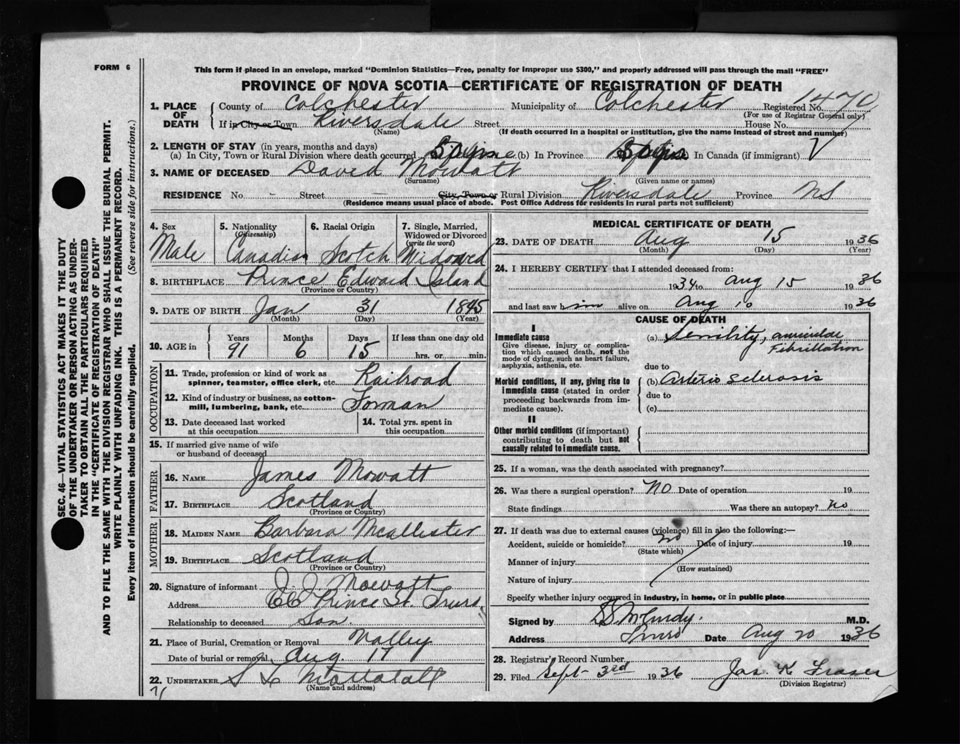 FORM 6
This form if placed in an envelope, marked "Dominion Statistics—Free, penalty for improper use $300," and properly addressed will pass through the mail "FREE"
PROVINCE OF NOVA SCOTIA—CERTIFICATE OF REGISTRATION OF DEATH
1. PLACE OF DEATH County of Colchester Municipality of Colchester Registered No. 1470
(For use of Registrar General only)
If in City or Town Riversdale Street House No.
(Name) (If death occurred in a hospital or institution, give the name instead of street and number)
2. LENGTH OF STAY (in years, months and days)
(a) In City, Town or Rural Division where death occurred (b) In Province In Canada (if immigrant) V
3. NAME OF DECEASED David Mowatt
(Surname) (Given name or names)
RESIDENCE No - Street City, Town or Rural Division Riversdale Province NS
(Residence means usual place of abode. Post Office Address for residents in rural parts not sufficient)
4. Sex Male
5. Nationality (Citizenship) Canadian
6. Racial Origin Scotch
7. Single, Married, Widowed or Divorced (write the word) Widowed
8. BIRTHPLACE Prince Edward Island
(Province or Country)
9. DATE OF BIRTH Jan 31 1845
(Month) (Day) (Year)
10. AGE in Years 91 Months 6 Days 15 If less than one day old hrs. or min.
OCCUPATION
11. Trade, profession or kind of work as spinner, teamster, office clerk, etc. Railroad
12. Kind of industry or business, as cotton-mill, lumbering, bank, etc. Forman
13. Date deceased last worked at this occupation
14. Total yrs. spent in this occupation
15. If married give name of wife or husband of deceased
FATHER
16. NAME James Mowatt
17. BIRTHPLACE Scotland
(Province or Country)
MOTHER
18. MAIDEN NAME Barbara Mcallister
19. BIRTHPLACE Scotland
(Province or Country)
20. Signature of informant J. J. Mowatt
Address Prince St. Truro
Relationship to deceased Son
21. Place of Burial, Cremation or Removal Valley
Date of burial or removal Aug. 17
22. UNDERTAKER S L Mattatall
(Name and address)
MEDICAL CERTIFICATE OF DEATH
23. DATE OF DEATH Aug 15 1936
(Month) (Day) (Year)
24. I HEREBY CERTIFY that I attended deceased from:
1934 to Aug 15 1936
and last saw him alive on Aug 10 1936
CAUSE OF DEATH
I
Immediate cause
Give disease, injury or complication which caused death, not the mode of dying, such as heart failure, asphyxia, asthenia, etc.
(a) Senility, auricular Fibrillation
due to
Morbid conditions, if any, giving rise to immediate cause (stated in order proceeding backwards from immediate cause).
(b) Arterio Sclerosis
due to
(c)
II
Other morbid conditions (if important) contributing to death but not causally related to immediate cause.
25. If a woman, was the death associated with pregnancy?
26. Was there a surgical operation? NO Date of operation 19
State findings Was there an autopsy? No
27. If death was due to external causes (violence) fill in also the following:—
Accident, suicide or homicide? no Date of injury 19
(State which)
Manner of injury
(How sustained)
Nature of injury
Specify whether injury occurred in industry, in home, or in public place
Signed by S S McCurdy. M.D.
Address Truro Date Aug 20 1936
28. Registrar's Record Number
29. Filed Sept 3rd 1936 Jas. K Fraser
(Division Registrar)
SEC. 46—VITAL STATISTICS ACT MAKES IT THE DUTY
OF THE UNDERTAKER OR PERSON ACTING AS UNDER-
TAKER TO OBTAIN ALL THE PARTICULARS REQUIRED
IN THE "CERTIFICATE OF REGISTRATION OF DEATH"
AND TO FILE THE SAME WITH THE DIVISION REGISTRAR WHO SHALL ISSUE THE BURIAL PERMIT.
WRITE PLAINLY WITH UNFADING INK. THIS IS A PERMANENT RECORD.
Every item of information should be carefully supplied. (See reverse side for instructions.)